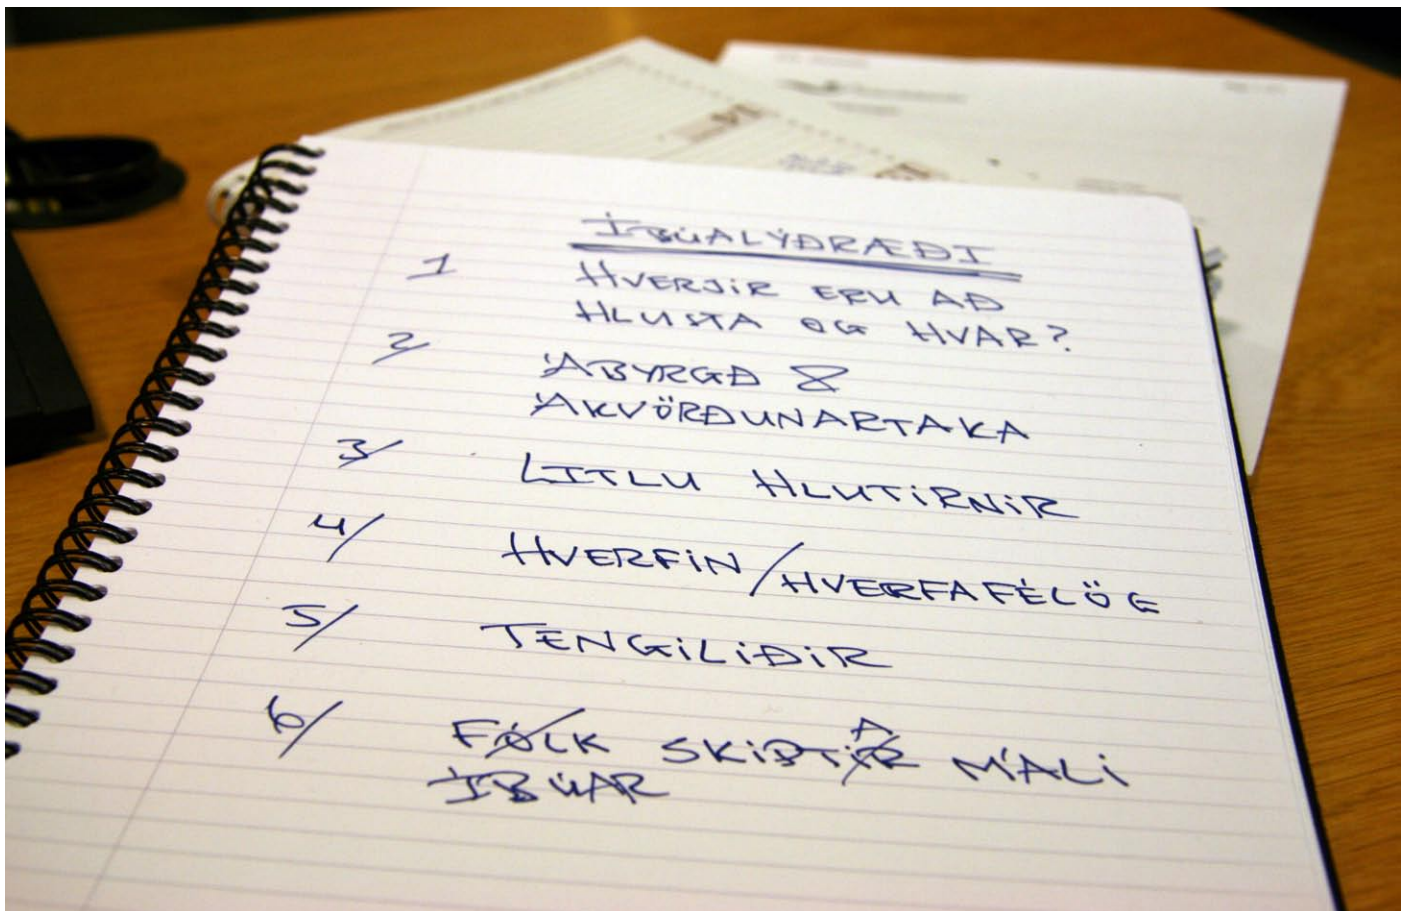 ÍBÚALÝÐRÆÐI
1 HVERJIR ERU AÐ
HLUSTA OG HVAR?
2/ ÁBYRGÐ &
ÁKVÖRÐUNARTAKA
3/ LITLU HLUTIRNIR
4/ HVERFIN/HVERFAFÉLÖG
5/ TENGILIÐIR
6/ FÓLK SKIPTIR A MÁLI
ÍBÚAR